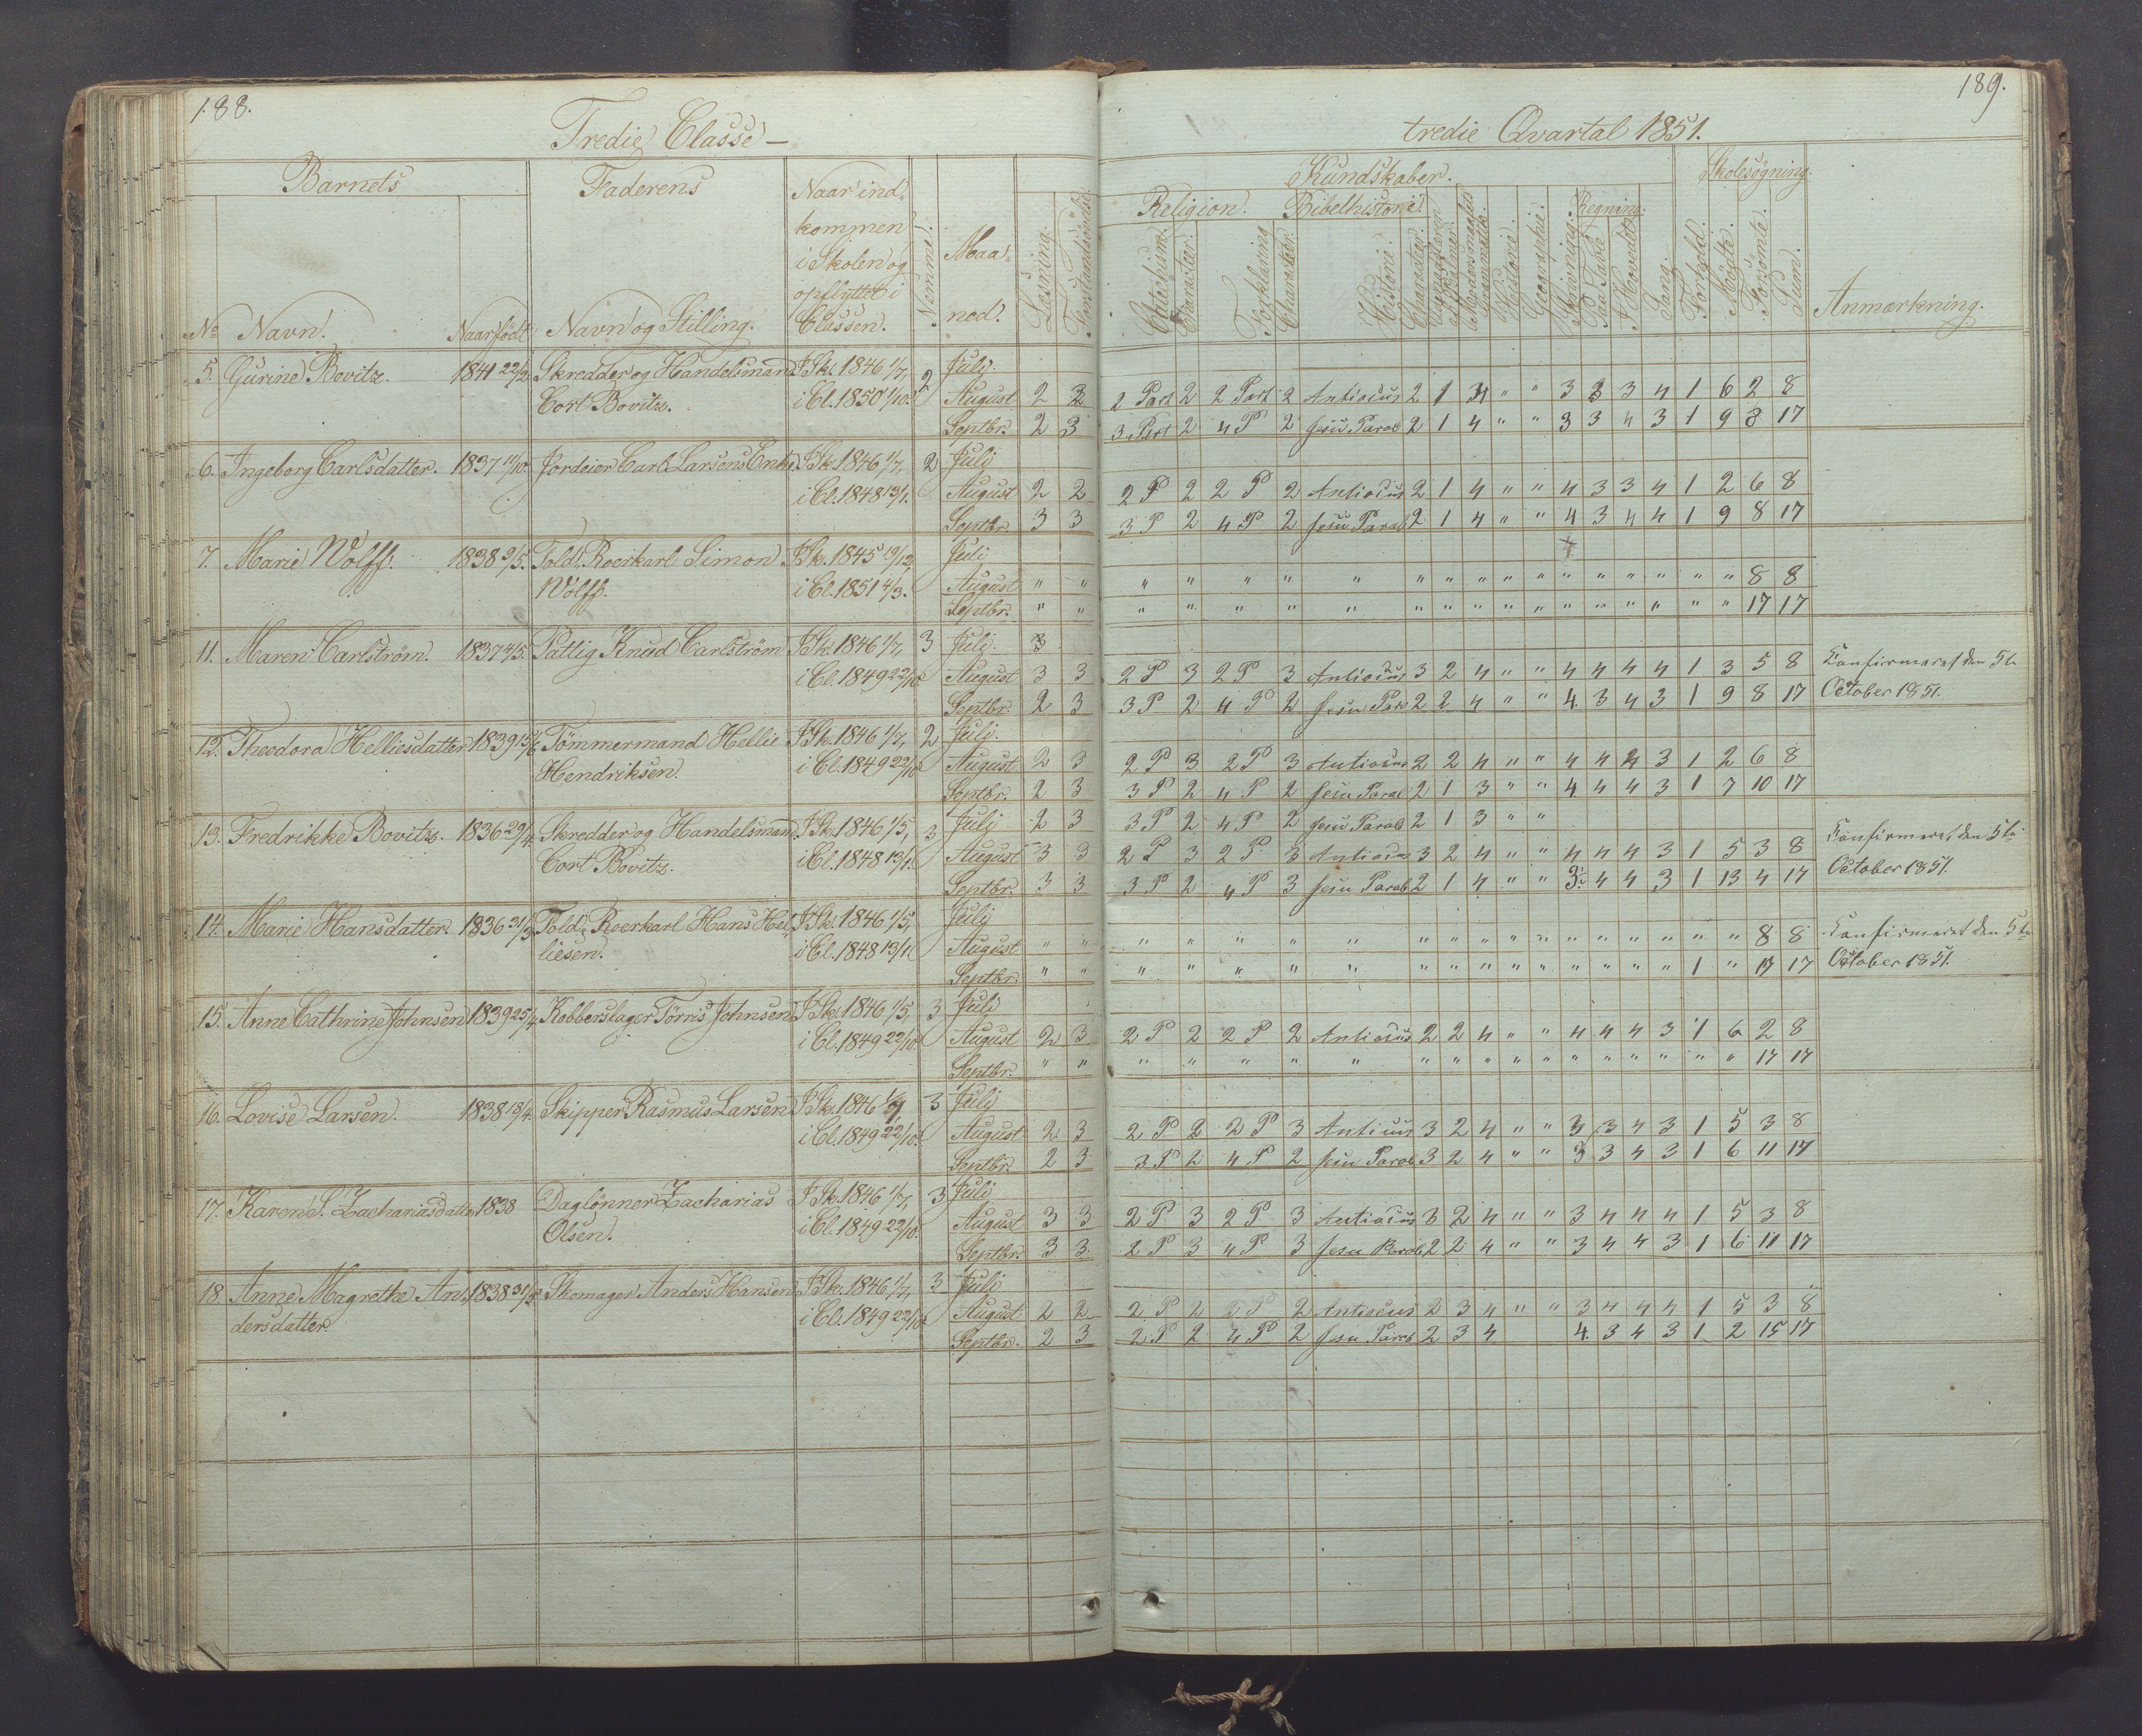 188.
Tredie Classe –
Barnets
Faderens
Naar ind-
kommen
i Skolen og
opflyttet i
Classen.
Nemme.
Maa-
ned.
Læsning.
Forstandsøvelse.
No Navn. Naar født Navn og Stilling.
189.
tredie Qvartal 1851.
Kundskaber.
Skolesøgning.
Religion. Bibelhistorie.
Regning.
Catechism. Character. Forklaring Character. Historie. Character. Historie. Geographie. Skrivning. Paa Tavle I Hovedet Sang. Forhold. Mødte. Forsømte. Sum.
Anmærkning.
5. Gurine Bovitz. 1841 22/2 Skredder og Handelsmand I Sk. 1846 1/7, 2 Juli.
Cort Bovitz. i Cl. 1850 1/10. August 2 2 2 Part 2 2 Part 2 Antiocus 2 1 4 " " 3 3 3 4 1 6 2 8
Septbr. 2 3 3 Part 2 4 P 2 Jesu Parab 2 1 4 " " 3 3 4 3 1 9 8 17
6. Ingeborg Carlsdatter. 1837 11/10. Jordeier Carl Larsens Enke I Sk. 1846 1/7, 2 Juli
i Cl. 1848 13/1. August 2 2 2 P 2 2 P 2 Antiocus 2 1 4 " " 4 3 3 4 1 2 6 8
Septbr. 3 3 3 P 2 4 P 2 Jesu Parab 2 1 4 " " 4 3 4 4 1 9 8 17
7. Marie Wolff. 1838 9/5. Told Roerkarl Simon I Sk. 1845 19/12, Juli
Wolff. i Cl. 1851 4/3. August " " " " " " " " " " " " " " " " " " " 8 8
Septbr. " " " " " " " " " " " " " " " " " " " 17 17
11. Maren Carlström. 1837 4/5. Fattig Knud Carlström I Sk. 1846 1/7, 3 Juli. 3
i Cl. 1849 22/10. August 3 3 2 P 3 2 P 3 Antiocus 3 2 4 " " 4 4 4 4 1 3 5 8 Confirmeret den 5te
Septbr. 2 3 3 P 2 4 P 2 Jesu Para 2 2 4 " " 4 3 4 3 1 9 8 17 October 1851.
12. Theodora Helliesdatter 1839 15/6 Tömmermand Hellie I Sk. 1846 1/7, 2 Juli.
Hendriksen. i Cl. 1849 22/10 August 2 3 2 P 3 2 P 3 Antiocus 2 2 4 " " 4 4 4 3 1 2 6 8
Septbr. 2 3 3 P 2 4 P 2 Jesu Parab 2 1 3 " " 4 4 4 3 1 7 10 17
13. Fredrikke Bovitz. 1836 29/4. Skredder og Handelsmand I Sk. 1846 1/5, 3 Juli 2 3 3 P 2 4 P 2 Jesu Parab 2 1 3 " "
Cort Bovitz. i Cl. 1848 13/1. August 3 3 2 P 3 2 P 3 Antiocus 3 2 4 " " 4 4 4 3 1 5 3 8 Confirmeret den 5te
Septbr. 3 3 3 P 2 4 P 3 Jesu Parab 2 1 4 " " 3 4 4 3 1 13 4 17 October 1851.
14. Marie Hansdatter. 1836 31/3 Told Roerkarl Hans Hel- I Sk. 1846 1/5, Juli
liesen. i Cl. 1848 13/1. August " " " " " " " " " " " " " " " " " " " 8 8 Confirmeret den 5te
Septbr. " " " " " " " " " " " " " " " " " 1 " 17 17 October 1851.
15. Anne Cathrine Johnsen 1839 25/4. Kobberslager Törris Johnsen I Sk. 1846 1/5, 3 Juli
i Cl. 1849 22/10. August 2 3 2 P 2 2 P 2 Antiocus 2 2 4 " " 4 4 4 3 1 6 2 8
Septbr. " " " " " " " " " " " " " " " " " " " 17 17
16. Lovise Larsen. 1838 18/4. Skipper Rasmus Larsen I Sk. 1846 1/7, 3 Juli
i Cl. 1849 22/10. August 2 3 2 P 2 2 P 3 Antiocus 3 2 4 " " 3 3 4 3 1 5 3 8
Septbr. 2 3 3 P 2 4 P 2 Jesu Parab 3 2 4 " " 3 3 4 3 1 6 11 17
17. Karen S. Zachariasdatter 1838 Daglönner Zacharias I Sk. 1846 1/7, 3 Juli
Olsen. i Cl. 1849 22/10. August 3 3 2 P 3 2 P 3 Antiocus 3 2 4 " " 3 4 4 4 1 5 3 8
Septbr. 3 3 2 P 3 4 P 3 Jesu Parab 2 2 4 " " 3 4 4 3 1 6 11 17
18. Anne Magrethe An- 1838 31/3 Skomager Anders Hansen I Sk. 1846 1/7, 3 Juli
dersdatter. i Cl. 1849 22/10 August 2 2 2 P 2 2 P 2 Antiocus 2 3 4 " " 3 4 4 4 1 5 3 8
Septbr. 2 3 2 P 2 4 P 2 Jesu Parab 2 3 4 4 3 4 3 1 2 15 17